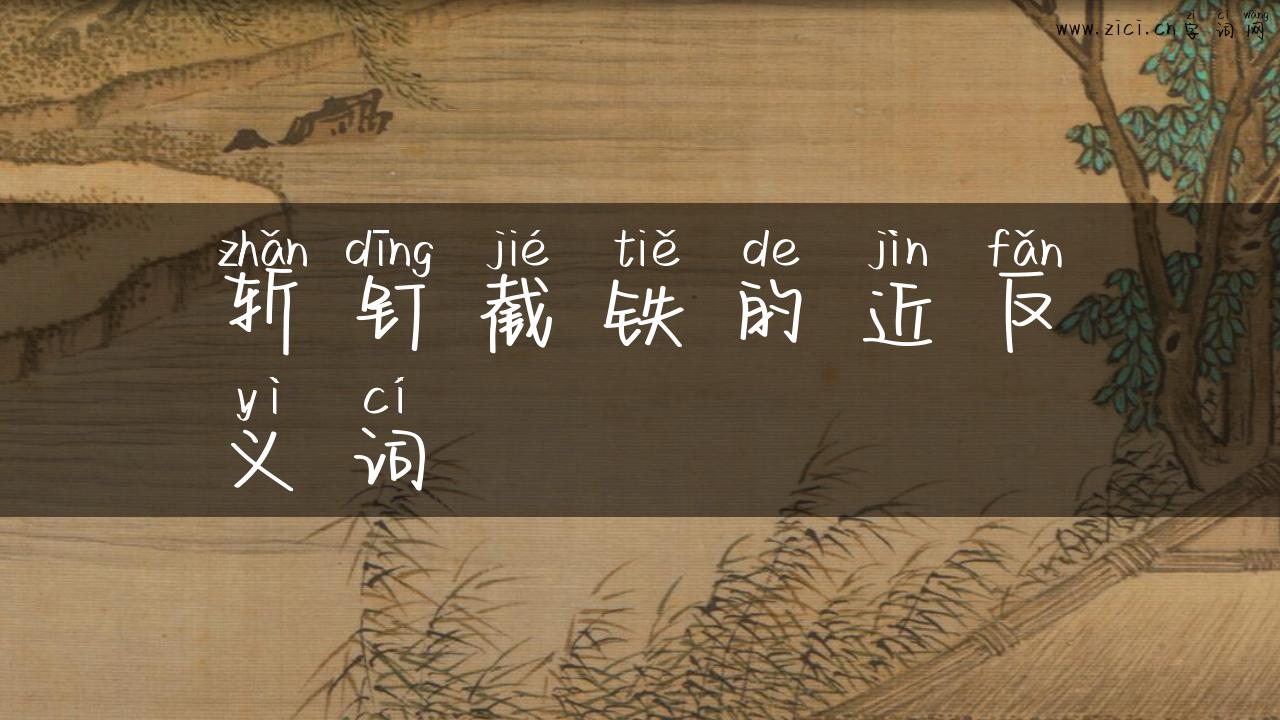 zì cí wǎng
www.zici.cn字词网
zhǎn dīng jié tiě de jìn fǎn
斩钉截铁的近反
yì cí
义词